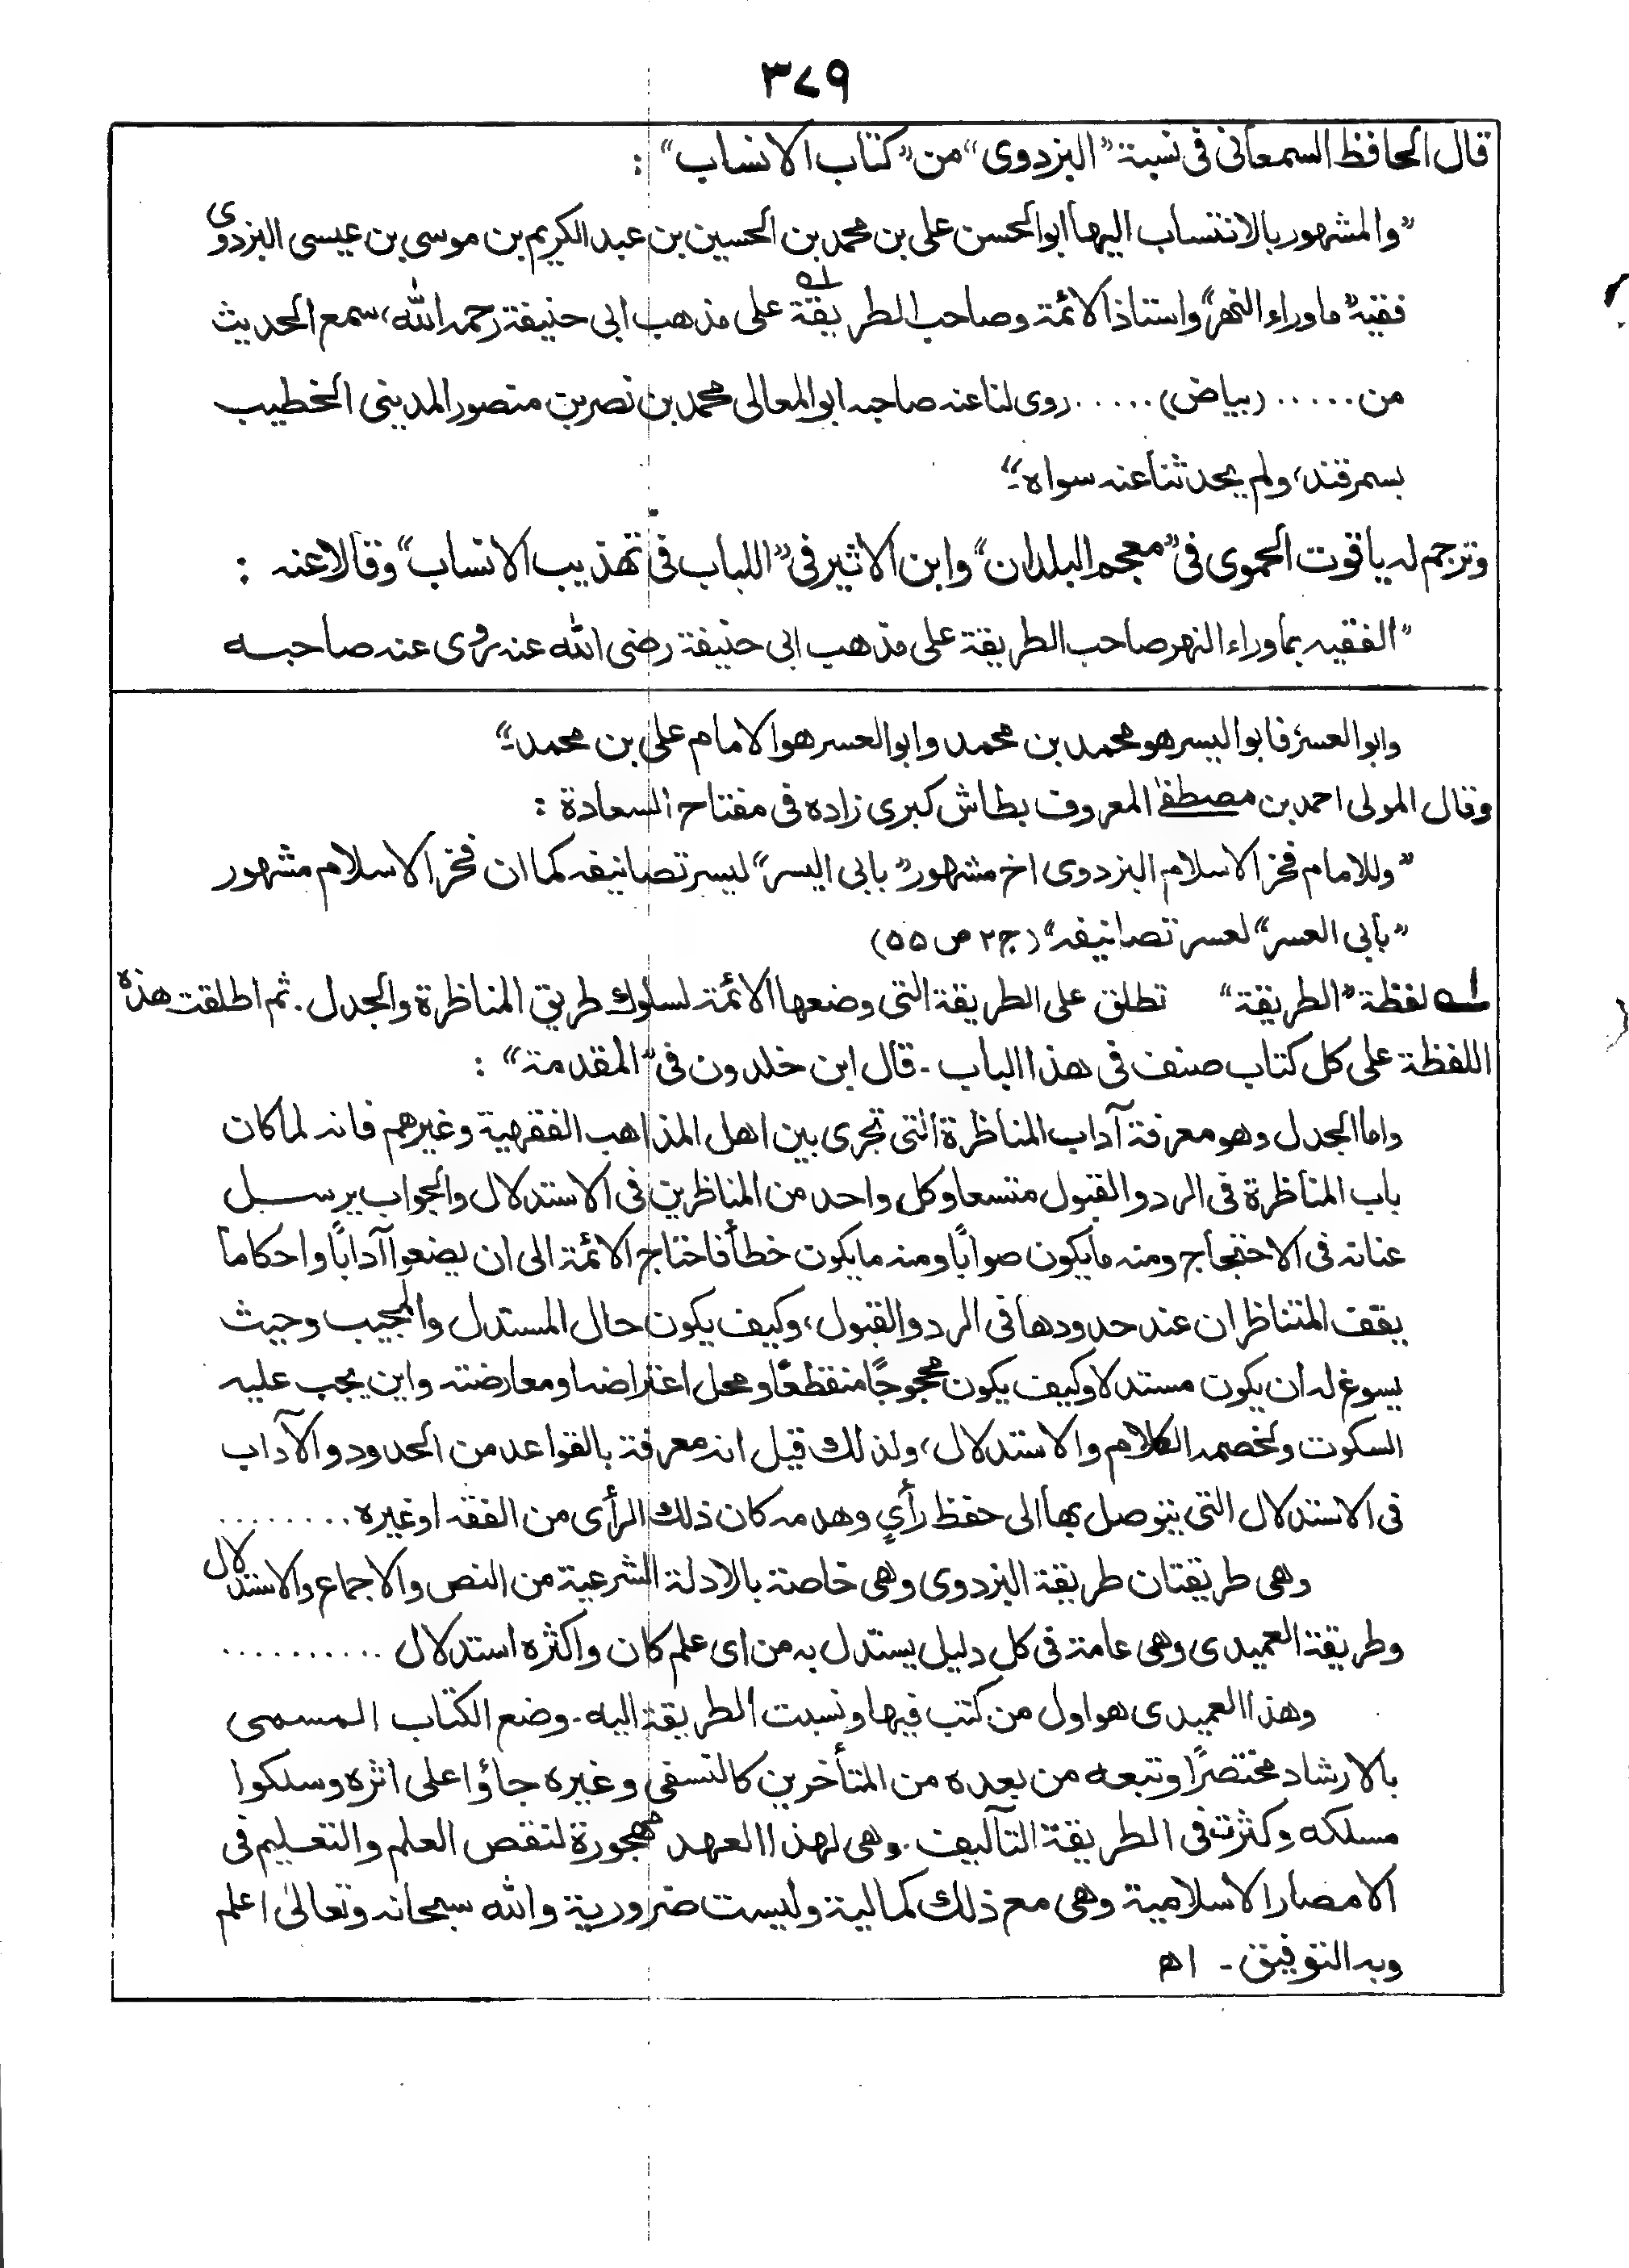 ٣٧٩
قال الحافظ السمعانى فى نسبة "البزدوى" من "كتاب الانساب" :
"والمشهور بالانتساب اليها ابوالحسن على بن محمد بن الحسين بن عبد الكريم بن موسى بن عيسى البزدوى
فقيه "ماوراء النهر" واستاذ الائمة وصاحب الطريقة لـه على مذهب ابى حنيفة رحمه الله، سمع الحديث
من ..... (بياض) ..... روى لنا عنه صاحبه ابو المعالى محمد بن نصر بن منصور المدينى الخطيب
بسمرقند، ولم يحدثنا عنه سواه"۔
وترجم له ياقوت الحموى فى "معجم البلدان" وابن الاثير فى "اللباب فى تهذيب الانساب" وقالا عنه :
"الفقيه بماوراء النهر صاحب الطريقة على مذهب ابى حنيفة رضى الله عنه روى عنه صاحبه
وابو العسر، فابو اليسر هو محمد بن محمد وابو العسر هو الامام على بن محمد"۔
وقال المولى احمد بن مصطفىٰ المعروف بطاش كبرى زاده فى مفتاح السعادة :
"وللامام فخر الاسلام البزدوى اخ مشهور "بابى اليسر" ليسر تصانيفه كما ان فخر الاسلام مشهور
"بأبى العسر" لعسر تصانيفه" (ج ٢ ص ٥٥)
لـه لفظة "الطريقة" تطلق على الطريقة التى وضعها الائمة لسلوك طريق المناظرة والجدل. ثم اطلقت هذه
اللفظة على كل كتاب صنف فى هذا الباب - قال ابن خلدون فى "المقدمة" :
واما الجدل وهو معرفة آداب المناظرة التى تجرى بين اهل المذاهب الفقهية وغيرهم فانه لما كان
باب المناظرة فى الرد والقبول متسعا وكل واحد من المناظرين فى الاستدلال والجواب يرسل
عنانه فى الاحتجاج ومنه مايكون صوابًا ومنه مايكون خطأ فاحتاج الائمة الى ان يضعوا آدابًا واحكاماً
يقف المتناظران عند حدودها فى الرد والقبول، وكيف يكون حال المستدل والمجيب وحيث
يسوغ له ان يكون مستدلا وكيف يكون محجوجًا منقطعًا ومحل اعتراضه او معارضته واين يجب عليه
السكوت ولخصمه الكلام والاستدلال، ولذلك قيل انه معرفة بالقواعد من الحدود والآداب
فى الاستدلال التى يتوصل بها الى حفظ رأيٍ وهدمه كان ذلك الرأى من الفقه اوغيره ........
وهى طريقتان طريقة البزدوى وهى خاصة بالادلة الشرعية من النص والاجماع والاستدلال
وطريقة العميدى وهى عامة فى كل دليل يستدل به من اى علم كان واكثره استدلال ..........
وهذا العميدى هو اول من كتب فيها ونسبت الطريقة اليه. وضع الكتاب المسمى
بالارشاد مختصرًا وتبعه من بعده من المتأخرين كالنسفى وغيره جاؤا على اثره وسلكوا
مسلكه وكثرت فى الطريقة التآليف. وهى لهذا العهد مهجورة لنقص العلم والتعليم فى
الامصار الاسلامية وهى مع ذلك كمالية وليست ضرورية والله سبحانه وتعالىٰ اعلم
وبه التوفيق - اھ